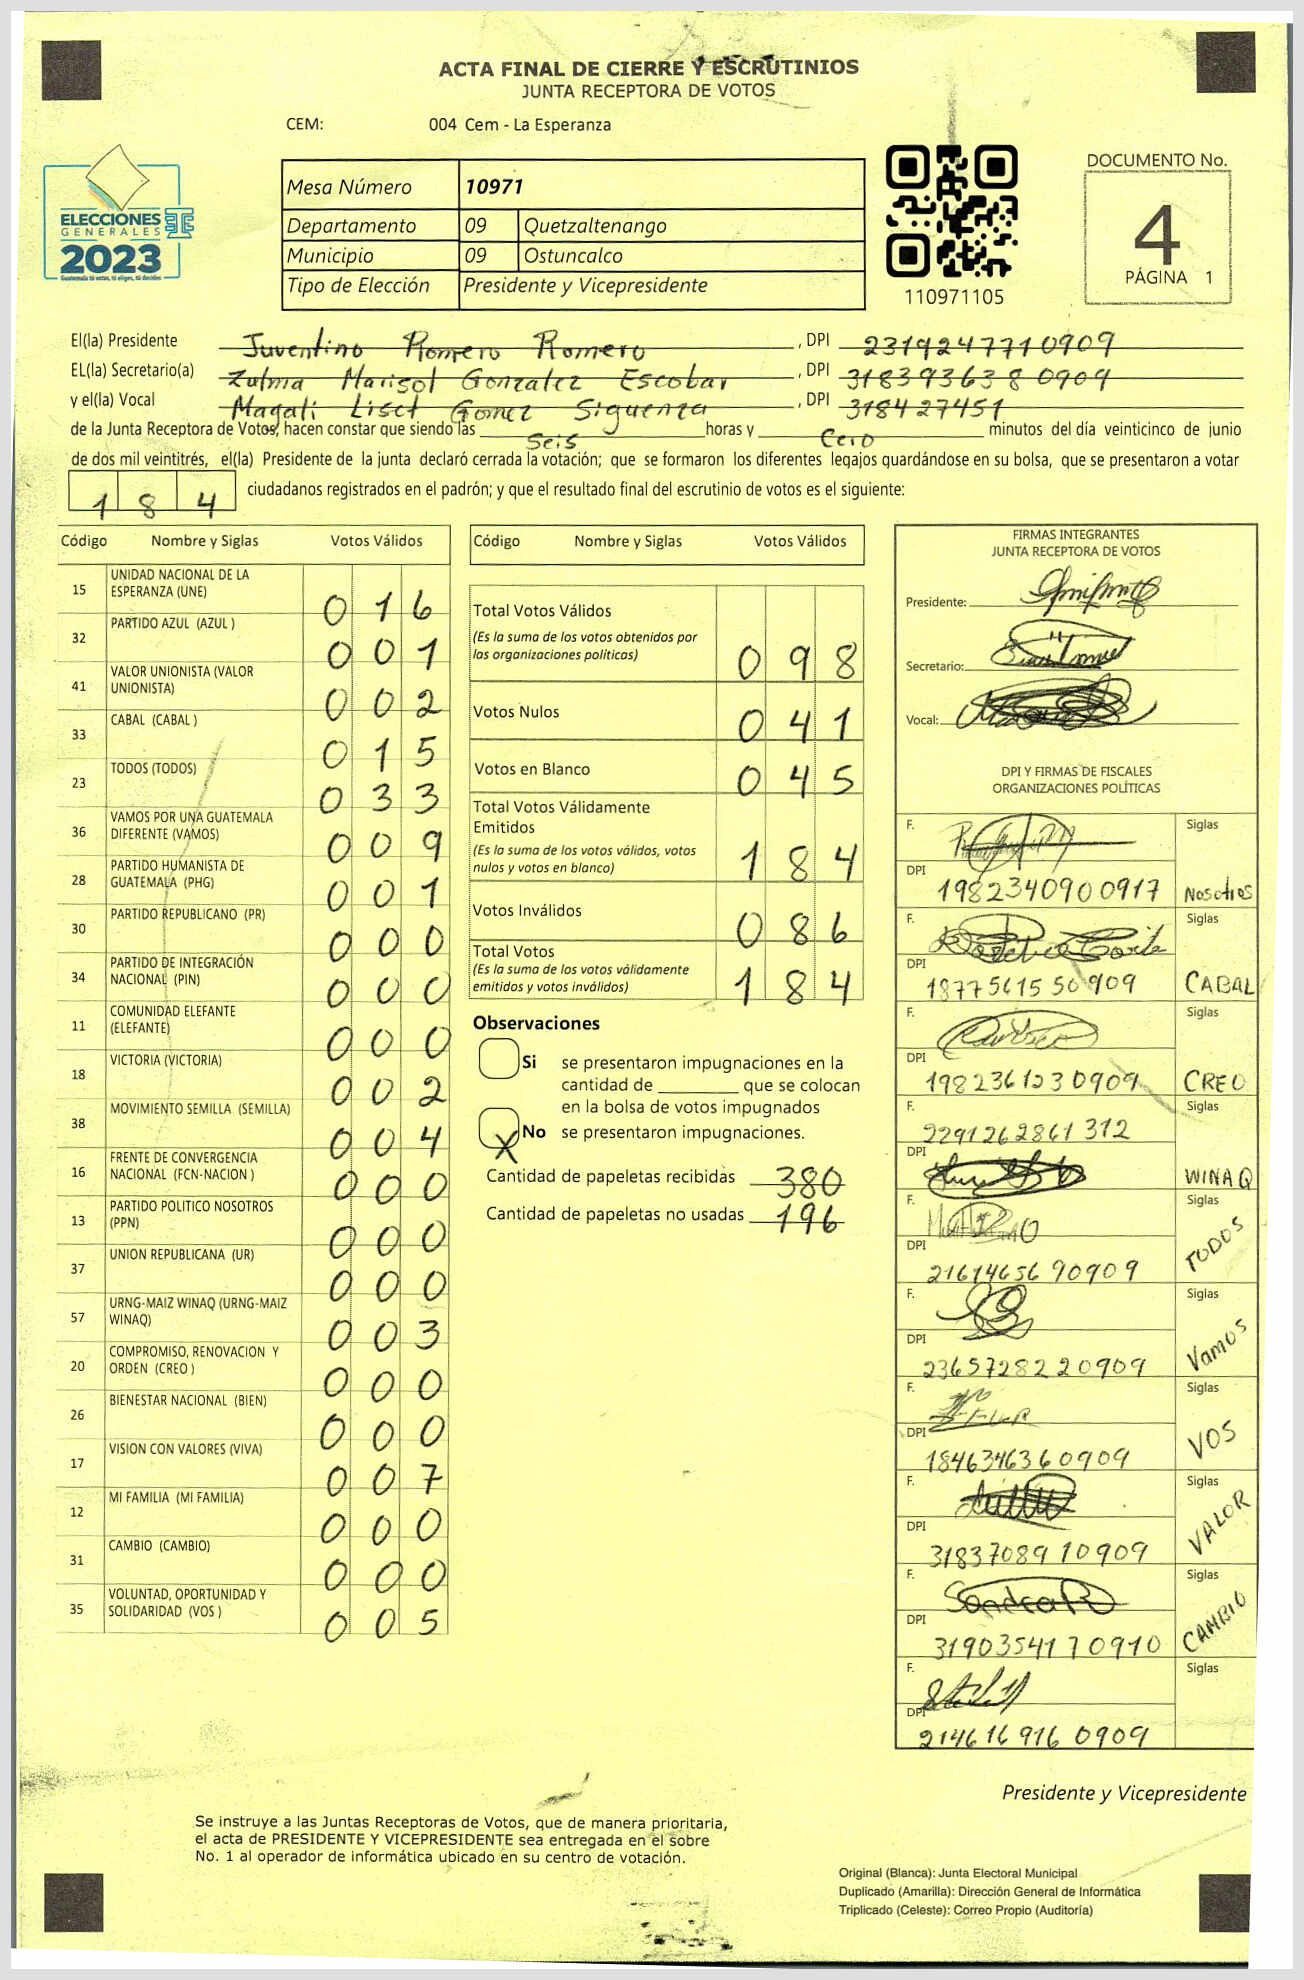 ACTA FINAL DE CIERRE Y ESCRUTINIOS
JUNTA RECEPTORA DE VOTOS
CEM: 004 Cem - La Esperanza
ELECCIONES
GENERALES
2023
Guatemala tú votas, tú eliges, tú decides
Mesa Número 10971
Departamento 09 Quetzaltenango
Municipio 09 Ostuncalco
Tipo de Elección Presidente y Vicepresidente
110971105
DOCUMENTO No.
4
PÁGINA 1
El(la) Presidente Juventino Romero Romero , DPI 2319247710909
EL(la) Secretario(a) Zulma Marisol Gonzalez Escobar , DPI 3183936380909
y el(la) Vocal Magali Liset Gomez Siguenza , DPI 318427451
de la Junta Receptora de Votos, hacen constar que siendo las Seis horas y Cero minutos del día veinticinco de junio
de dos mil veintitrés, el(la) Presidente de la junta declaró cerrada la votación; que se formaron los diferentes legajos guardándose en su bolsa, que se presentaron a votar
184 ciudadanos registrados en el padrón; y que el resultado final del escrutinio de votos es el siguiente:
Código Nombre y Siglas Votos Válidos
15 UNIDAD NACIONAL DE LA ESPERANZA (UNE) 016
32 PARTIDO AZUL (AZUL ) 001
41 VALOR UNIONISTA (VALOR UNIONISTA) 002
33 CABAL (CABAL ) 015
23 TODOS (TODOS) 033
36 VAMOS POR UNA GUATEMALA DIFERENTE (VAMOS) 009
28 PARTIDO HUMANISTA DE GUATEMALA (PHG) 001
30 PARTIDO REPUBLICANO (PR) 000
34 PARTIDO DE INTEGRACIÓN NACIONAL (PIN) 000
11 COMUNIDAD ELEFANTE (ELEFANTE) 000
18 VICTORIA (VICTORIA) 002
38 MOVIMIENTO SEMILLA (SEMILLA) 004
16 FRENTE DE CONVERGENCIA NACIONAL (FCN-NACION ) 000
13 PARTIDO POLITICO NOSOTROS (PPN) 000
37 UNION REPUBLICANA (UR) 000
57 URNG-MAIZ WINAQ (URNG-MAIZ WINAQ) 003
20 COMPROMISO, RENOVACION Y ORDEN (CREO ) 000
26 BIENESTAR NACIONAL (BIEN) 000
17 VISION CON VALORES (VIVA) 007
12 MI FAMILIA (MI FAMILIA) 000
31 CAMBIO (CAMBIO) 000
35 VOLUNTAD, OPORTUNIDAD Y SOLIDARIDAD (VOS ) 005
Código Nombre y Siglas Votos Válidos
Total Votos Válidos
(Es la suma de los votos obtenidos por
las organizaciones políticas) 098
Votos Nulos 041
Votos en Blanco 045
Total Votos Válidamente
Emitidos
(Es la suma de los votos válidos, votos
nulos y votos en blanco) 184
Votos Inválidos 086
Total Votos
(Es la suma de los votos válidamente
emitidos y votos inválidos) 184
Observaciones
Si se presentaron impugnaciones en la
cantidad de ________ que se colocan
en la bolsa de votos impugnados
X No se presentaron impugnaciones.
Cantidad de papeletas recibidas 380
Cantidad de papeletas no usadas 196
FIRMAS INTEGRANTES
JUNTA RECEPTORA DE VOTOS
Presidente:
Secretario:
Vocal:
DPI Y FIRMAS DE FISCALES
ORGANIZACIONES POLÍTICAS
F. Siglas
DPI 1982340900917 Nosotros
F. Siglas
DPI 1877561550909 CABAL
F. Siglas
DPI 1982361230909 CREO
F. 2291262861312 Siglas
DPI WINAQ
F. Siglas
DPI 2161465690909 TODOS
F. Siglas
DPI 2365728220909 Vamos
F. Siglas
DPI 1846346360909 VOS
F. Siglas
DPI 3183708910909 VALOR
F. Sandra R Siglas
DPI 3190354170910 CAMBIO
F. Siglas
DPI 2146169160909
Presidente y Vicepresidente
Se instruye a las Juntas Receptoras de Votos, que de manera prioritaria,
el acta de PRESIDENTE Y VICEPRESIDENTE sea entregada en el sobre
No. 1 al operador de informática ubicado en su centro de votación.
Original (Blanca): Junta Electoral Municipal
Duplicado (Amarilla): Dirección General de Informática
Triplicado (Celeste): Correo Propio (Auditoría)